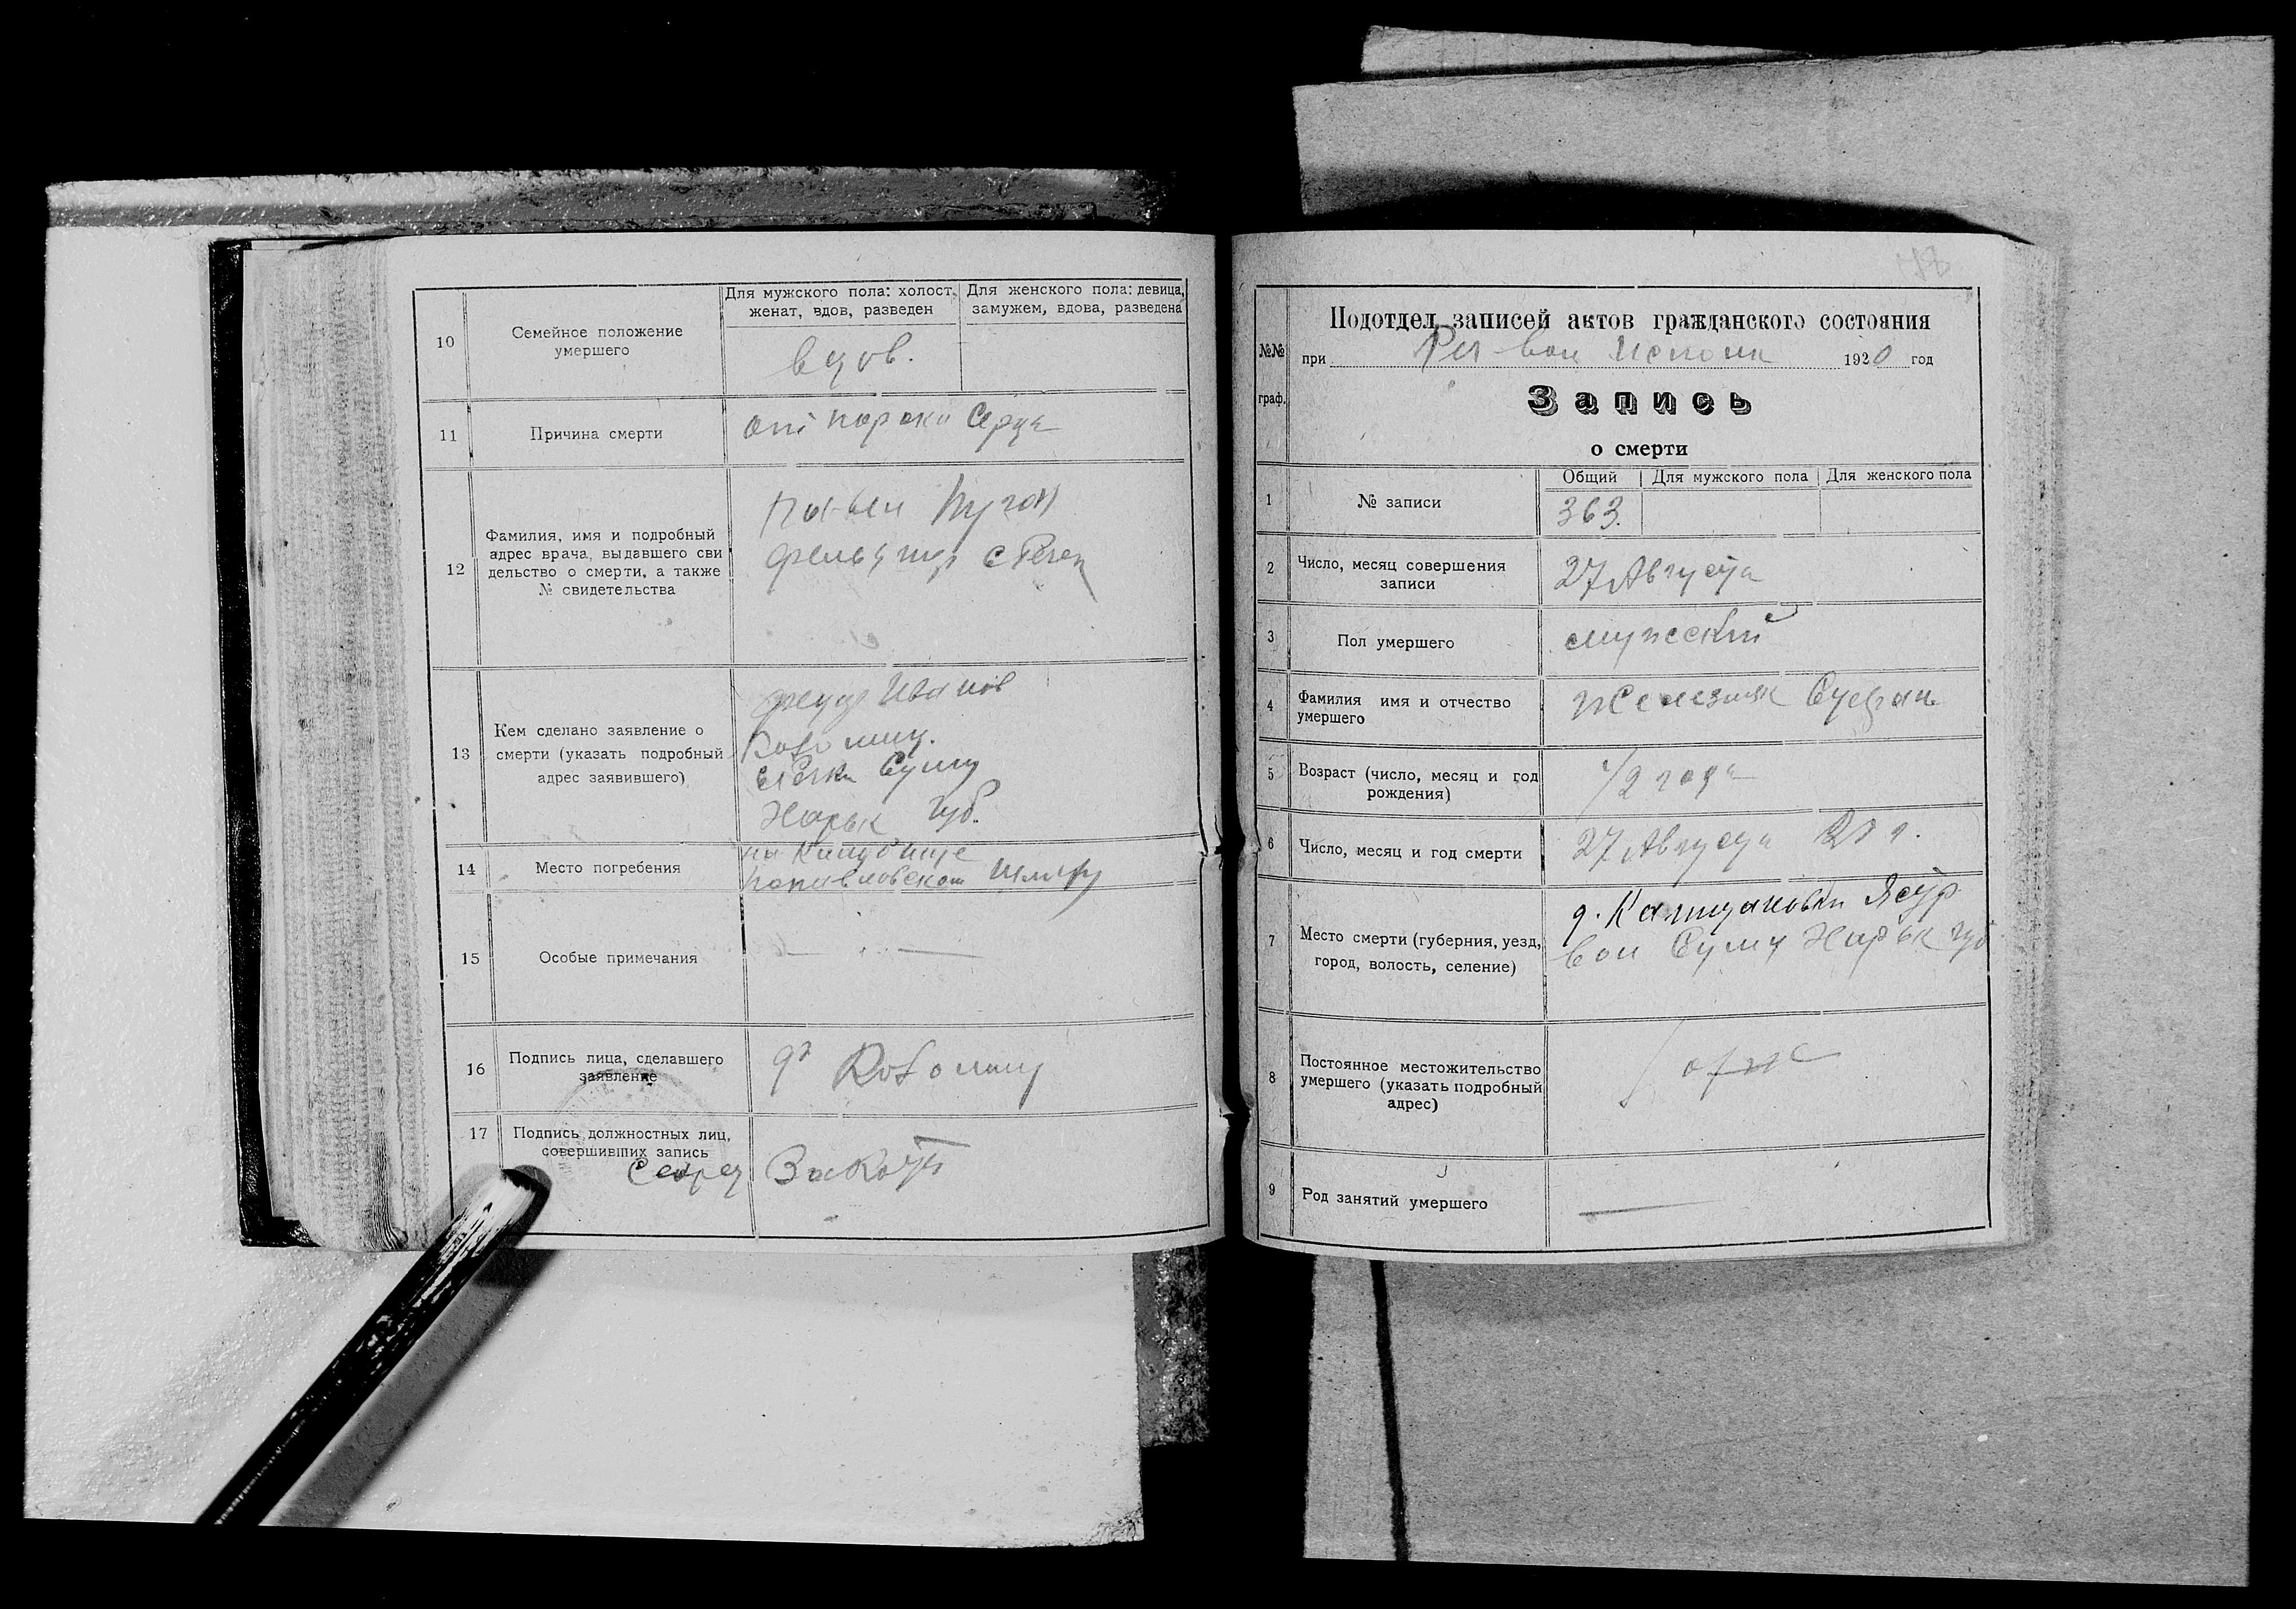 10
Семейное положение
умершего
Для мужского пола: холост,
женат, вдов, разведен
Для женского пола: девица,
замужем, вдова, разведена
вдов.
11
Причина смерти
от порока Серца
12
Фамилия, имя и подробный
адрес врача, выдавшего сви
дельство о смерти, а также
№ свидетельства
фельдшер с Речек
13
Кем сделано заявление о
смерти (указать подробный
адрес заявившего)
Иванов
Сумц
Харьк губ.
14
Место погребения
на Кладбище
15
Особые примечания
16
Подпись лица, сделавшего
заявление
17
Подпись должностных лиц,
совершивших запись
Секрет
№№
граф.
Подотдел записей актов гражданского состояния
при Реч вол Исполк 1920 год
Запись
о смерти
1
№ записи
Общий
Для мужского пола
Для женского пола
363.
2
Число, месяц совершения
записи
27 Августа
3
Пол умершего
мужский
4
Фамилия имя и отчество
умершего
Железняк
5
Возраст (число, месяц и год
рождения)
1/2 года
6
Число, месяц и год смерти
27 Августа 20 г.
7
Место смерти (губерния, уезд,
город, волость, селение)
д.
вол Сумц Харьк губ
8
Постоянное местожительство
умершего (указать подробный
адрес)
9
Род занятий умершего